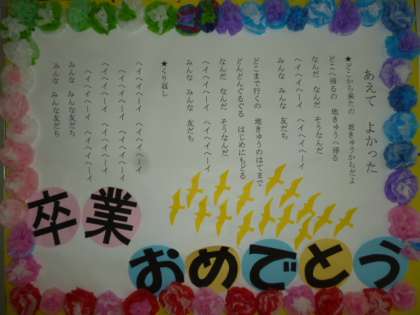 あえて よかった
★どこから来たの 地きゅうからだよ
どこへ帰るの 地きゅうへ帰る
なんだ なんだ そうなんだ
ヘイヘイヘーイ ヘイヘイヘーイ
みんな みんな 友だち
どこまで行くの 地きゅうのはてまで
どんどんぐるぐる はじめにもどる
なんだ なんだ そうなんだ
ヘイヘイヘーイ ヘイヘイヘーイ
みんな みんな 友だち
★くり返し
ヘイヘイヘーイ ヘイヘイヘーイ
ヘイヘイヘーイ ヘイヘイヘーイ
ヘイヘイヘーイ ヘイヘイヘーイ
ヘイヘイヘーイ ヘイヘイヘーイ
みんな みんな友だち
みんな みんな友だち
卒業
おめでとう